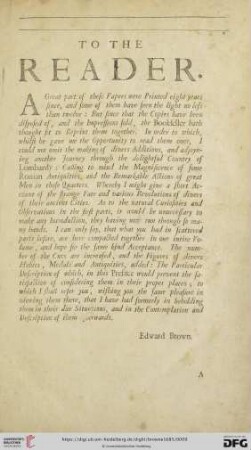 TO THE
READER.
A Great part of these Papers were Printed eight years
since, and some of them have seen the light no less
than twelve: But since that the Copies have been
disposed of, and the Impressions sold, the Bookseller hath
thought fit to Reprint them together. In order to which,
whilst he gave me the Opportunity to read them over, I
could not omit the making of divers Additions, and
another Journey through the delightful Country of
Lombardy: Calling to mind the Magnificence of some
Roman Antiquities, and the Remarkable Actions of great
Men in those Quarters. Whereby I might give a short
of the strange Fate and various Revolutions of divers
of their ancient Cities. As to the natural Curiosities and
Observations in the first parts, it would be unnecessary to make
any Introduction, they having now run through so
many hands. I can only say, that what you had in scattered
parts before, are here compacted together in one entire
Volume, and hope for the same kind Acceptance. The
number of the Cuts are increased, and the Figures of divers
Habits, Medals and Antiquities, added: The Particular
Description of which, in this Preface would prevent the
satisfaction of considering them in their proper places; to
which I shall refer you, wishing you the same pleasure in
viewing them there, that I have had formerly in beholding
them in their due Situations, and in the Contemplation and
Description of them afterwards.
Edward Brown.
A
UNIVERSITÄTS-
BIBLIOTHEK
HEIDELBERG